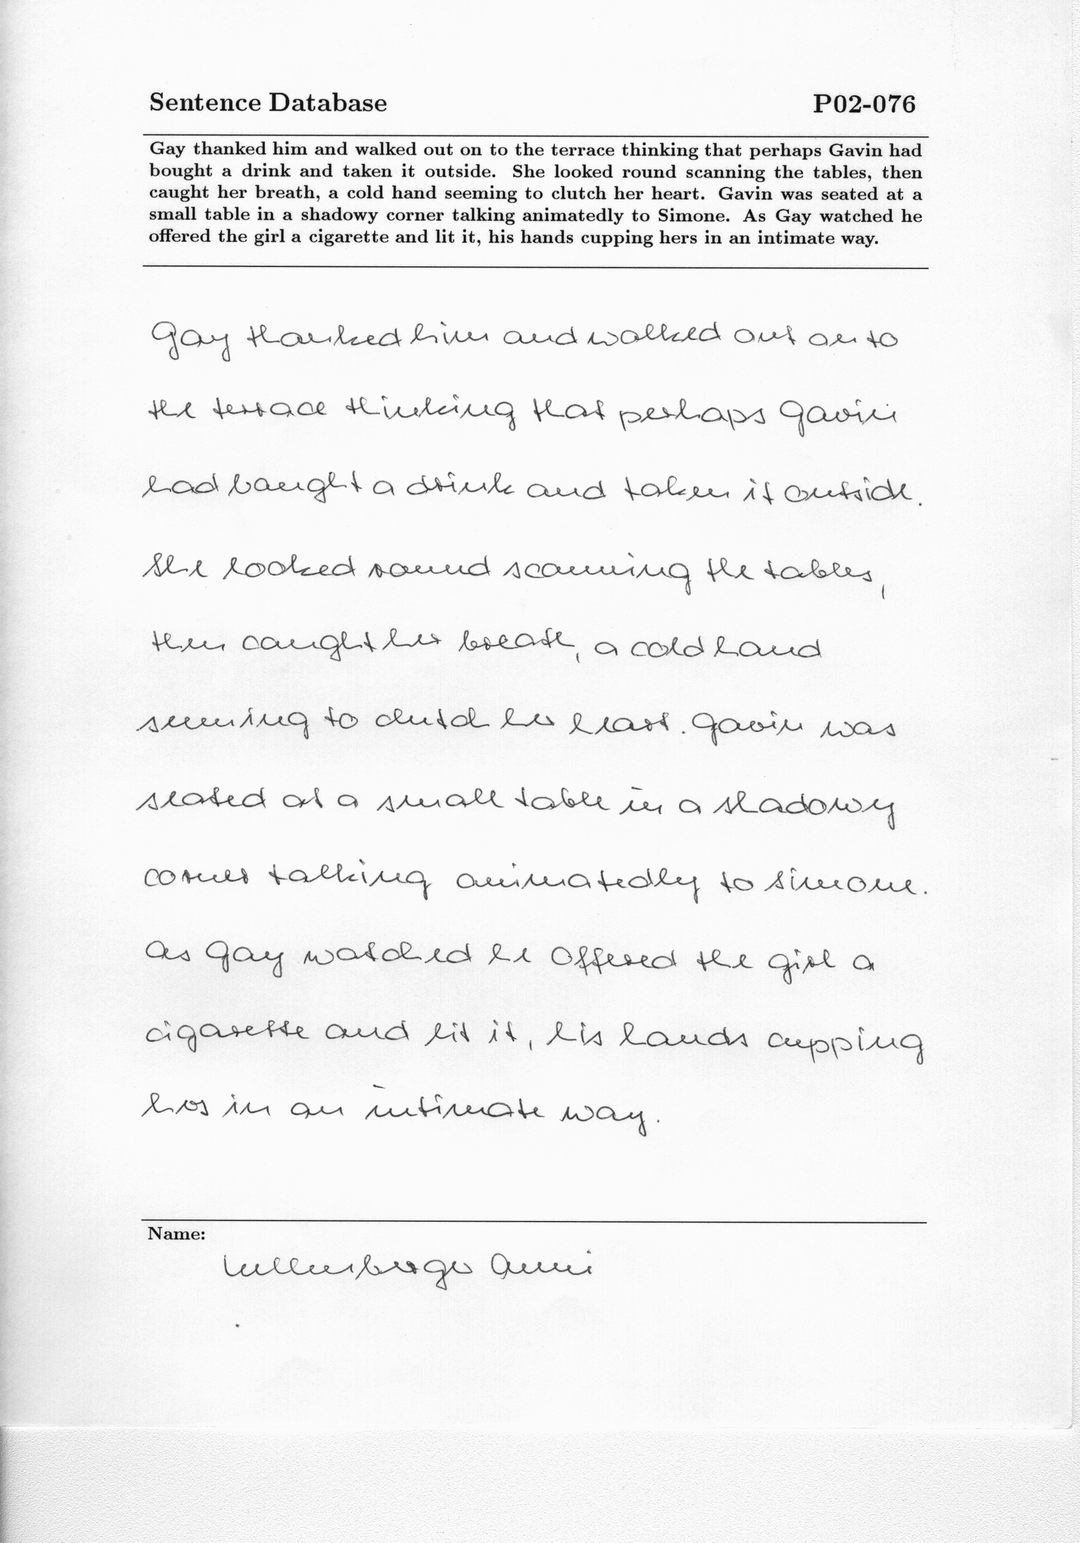 Sentence Database P02-076
Gay thanked him and walked out on to the terrace thinking that perhaps Gavin had
bought a drink and taken it outside. She looked round scanning the tables, then
caught her breath, a cold hand seeming to clutch her heart. Gavin was seated at a
small table in a shadowy corner talking animatedly to Simone. As Gay watched he
offered the girl a cigarette and lit it, his hands cupping hers in an intimate way.
Gay thanked him and walked out on to
the terrace thinking that perhaps Gavin
had bought a drink and taken it outside.
She looked round scanning the tables,
then caught her breath, a cold hand
seeming to clutch her heart. Gavin was
seated at a small table in a shadowy
corner talking animatedly to Simone.
As Gay watched he offered the girl a
cigarette and lit it, his hands cupping
hers in an intimate way.
Name: